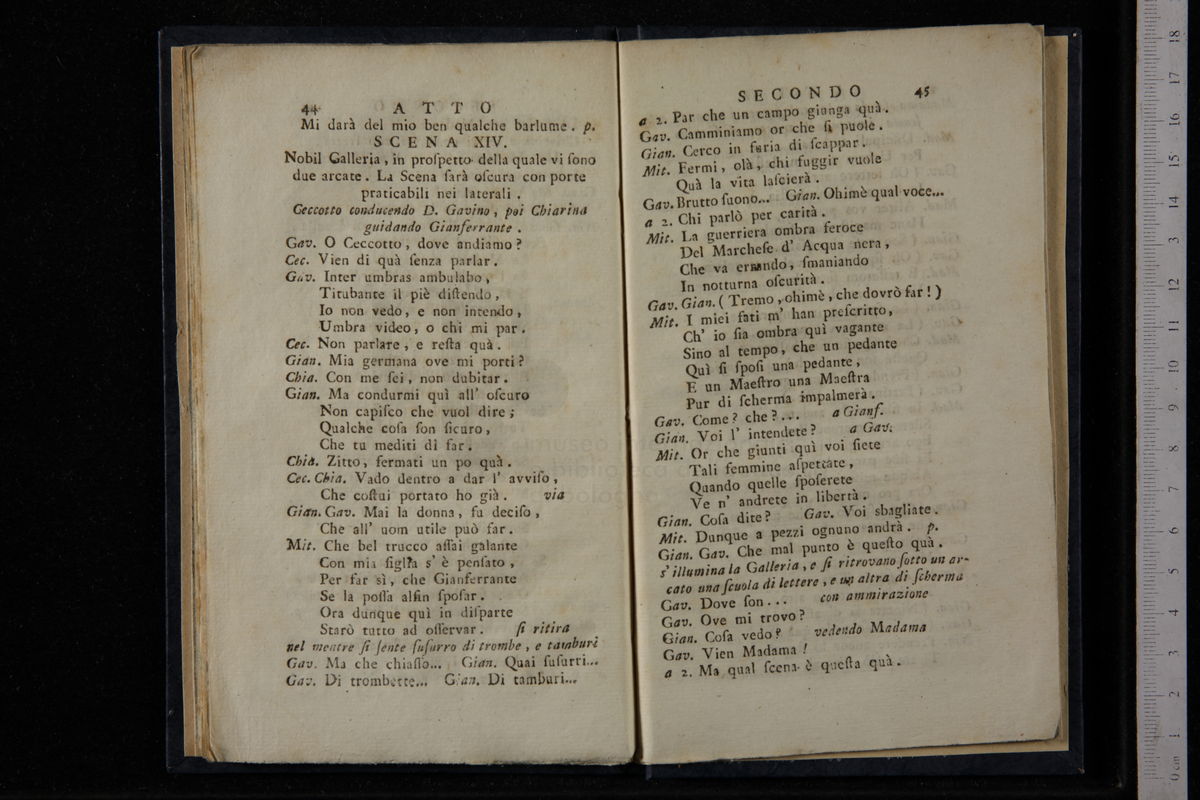 44 ATTO
Mi darà del mio ben qualche barlume. p.
SCENA XIV.
Nobil Galleria, in proſpetto della quale vi ſono
due arcate. La Scena ſarà oſcura con porte
praticabili nei laterali.
Ceccotto conducendo D. Gavino, poi Chiarina
guidando Gianferrante.
Gav. O Ceccotto, dove andiamo?
Cec. Vien di quà ſenza parlar.
Gav. Inter umbras ambulabo,
Titubante il piè diſtendo,
Io non vedo, e non intendo,
Umbra video, o chi mi par.
Cec. Non parlare, e reſta quà.
Gian. Mia germana ove mi porti?
Chia. Con me ſei, non dubitar.
Gian. Ma condurmi quì all' oſcuro
Non capiſco che vuol dire;
Qualche coſa ſon ſicuro,
Che tu mediti di far.
Chia. Zitto, fermati un po quà.
Cec. Chia. Vado dentro a dar l' avviſo,
Che coſtui portato ho già. via
Gian. Gav. Mai la donna, fu deciſo,
Che all' uom utile può far.
Mit. Che bel trucco aſſai galante
Con mia figlia s' è penſato,
Per far sì, che Gianferrante
Se la poſſa alfin ſpoſar.
Ora dunque quì in diſparte
Starò tutto ad oſſervar. ſi ritira
nel mentre ſi ſente ſuſurro di trombe, e tamburi
Gav. Ma che chiaſſo... Gian. Quai ſuſurri...
Gav. Di trombette... Gian. Di tamburi...
SECONDO 45
a 2. Par che un campo giunga quà.
Gav. Camminiamo or che ſi puole.
Gian. Cerco in furia di ſcappar.
Mit. Fermi, olà, chi fuggir vuole
Quà la vita laſcierà.
Gav. Brutto ſuono... Gian. Ohimè qual voce...
a 2. Chi parlò per carità.
Mit. La guerriera ombra feroce
Del Marcheſe d' Acqua nera,
Che va errando, ſmaniando
In notturna oſcurità.
Gav. Gian. (Tremo, ohimè, che dovrò far!)
Mit. I miei fati m' han preſcritto,
Ch' io ſia ombra quì vagante
Sino al tempo, che un pedante
Quì ſi ſpoſi una pedante,
E un Maeſtro una Maeſtra
Pur di ſcherma impalmerà.
Gav. Come? che?... a Gianf.
Gian. Voi l' intendete? a Gav.
Mit. Or che giunti quì voi ſiete
Tali femmine aſpettate,
Quando quelle ſpoſerete
Ve n' andrete in libertà.
Gian. Coſa dite? Gav. Voi sbagliate.
Mit. Dunque a pezzi ognuno andrà. p.
Gian. Gav. Che mal punto è queſto quà.
s' illumina la Galleria, e ſi ritrovano ſotto un ar-
cato una ſcuola di lettere, e un altra di ſcherma
Gav. Dove ſon... con ammirazione
Gav. Ove mi trovo?
Gian. Coſa vedo? vedendo Madama
Gav. Vien Madama!
a 2. Ma qual ſcena è queſta quà.